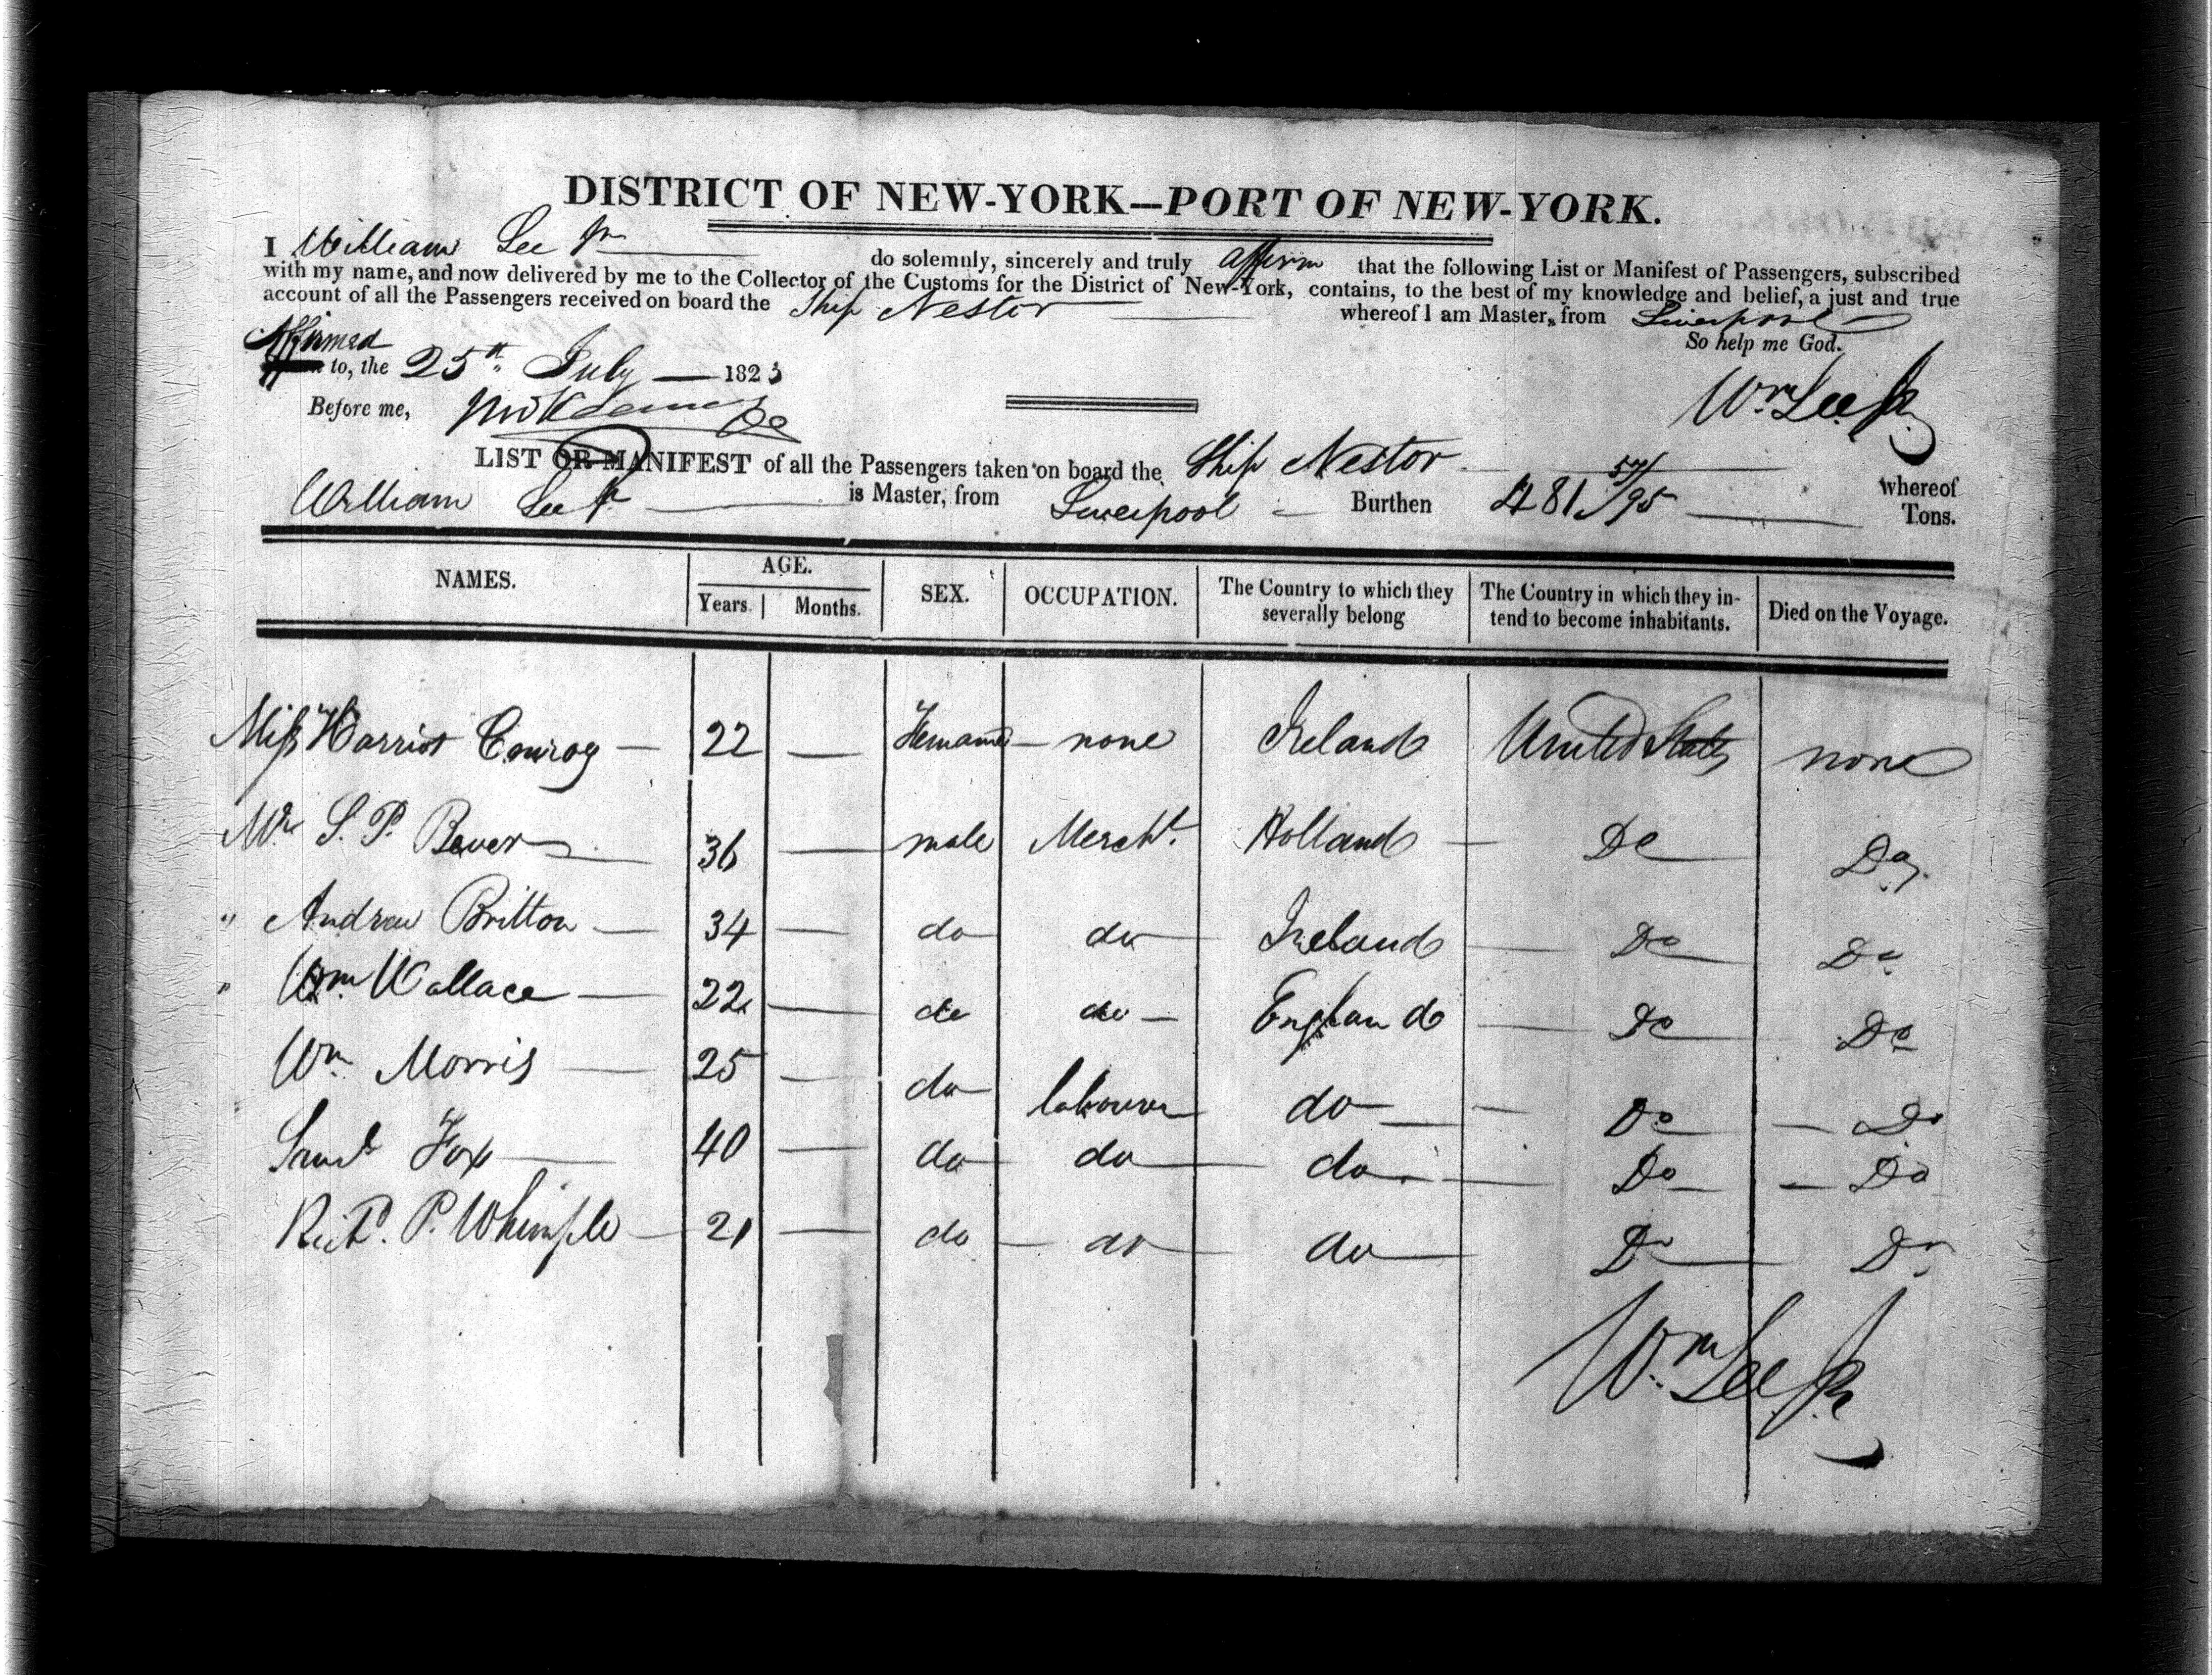 DISTRICT OF NEW-YORK—PORT OF NEW-YORK.
I William Lee Jr do solemnly, sincerely and truly affirm that the following List or Manifest of Passengers, subscribed
with my name, and now delivered by me to the Collector of the Customs for the District of New-York, contains, to the best of my knowledge and belief, a just and true
account of all the Passengers received on board the Ship Nestor whereof I am Master, from Liverpool
So help me God.
Affirmed to, the 25th July 1823
Wm Lee Jr.
Before me,
LIST OR MANIFEST of all the Passengers taken on board the Ship Nestor whereof
William Lee Jr is Master, from Liverpool Burthen 481 57/95 Tons.
NAMES. AGE. Years. Months. SEX. OCCUPATION. The Country to which they severally belong The Country in which they intend to become inhabitants. Died on the Voyage.
Miss Harriot Conroy — 22 — none Ireland United States none
Mr S. P. Bever 36 — male Mercht. Holland — Do Do.
" Andrew Britton — 34 — do do Ireland — Do Do
" Wm Wallace — 22 — do do — England — Do Do
Wm Morris — 25 — do labourer do — Do — Do
Saml Fox — 40 — do do do — Do — Do
Richd. P. Whimple — 21 — do — do do Do Do
Wm. Lee Jr